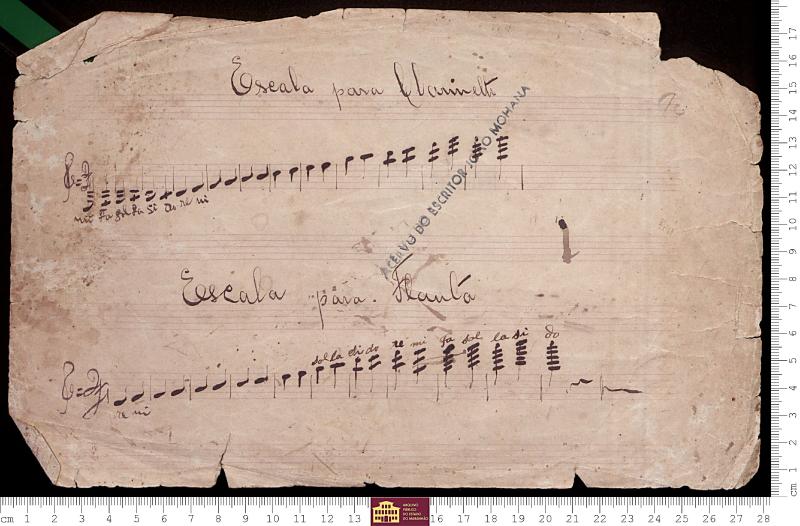 Escala para Clarinetti
mi fa sol la si do re mi
ACERVO DO ESCRITOR JOÃO MOHANA
Escala para. Flauta
sol la si do re mi fa sol la si do
re mi
ARQUIVO
PÚBLICO
DO ESTADO
DO MARANHÃO
cm 1 2 3 4 5 6 7 8 9 10 11 12 13 16 17 18 19 20 21 22 23 24 25 26 27 28
cm 1 2 3 4 5 6 7 8 9 10 11 12 13 14 15 16 17